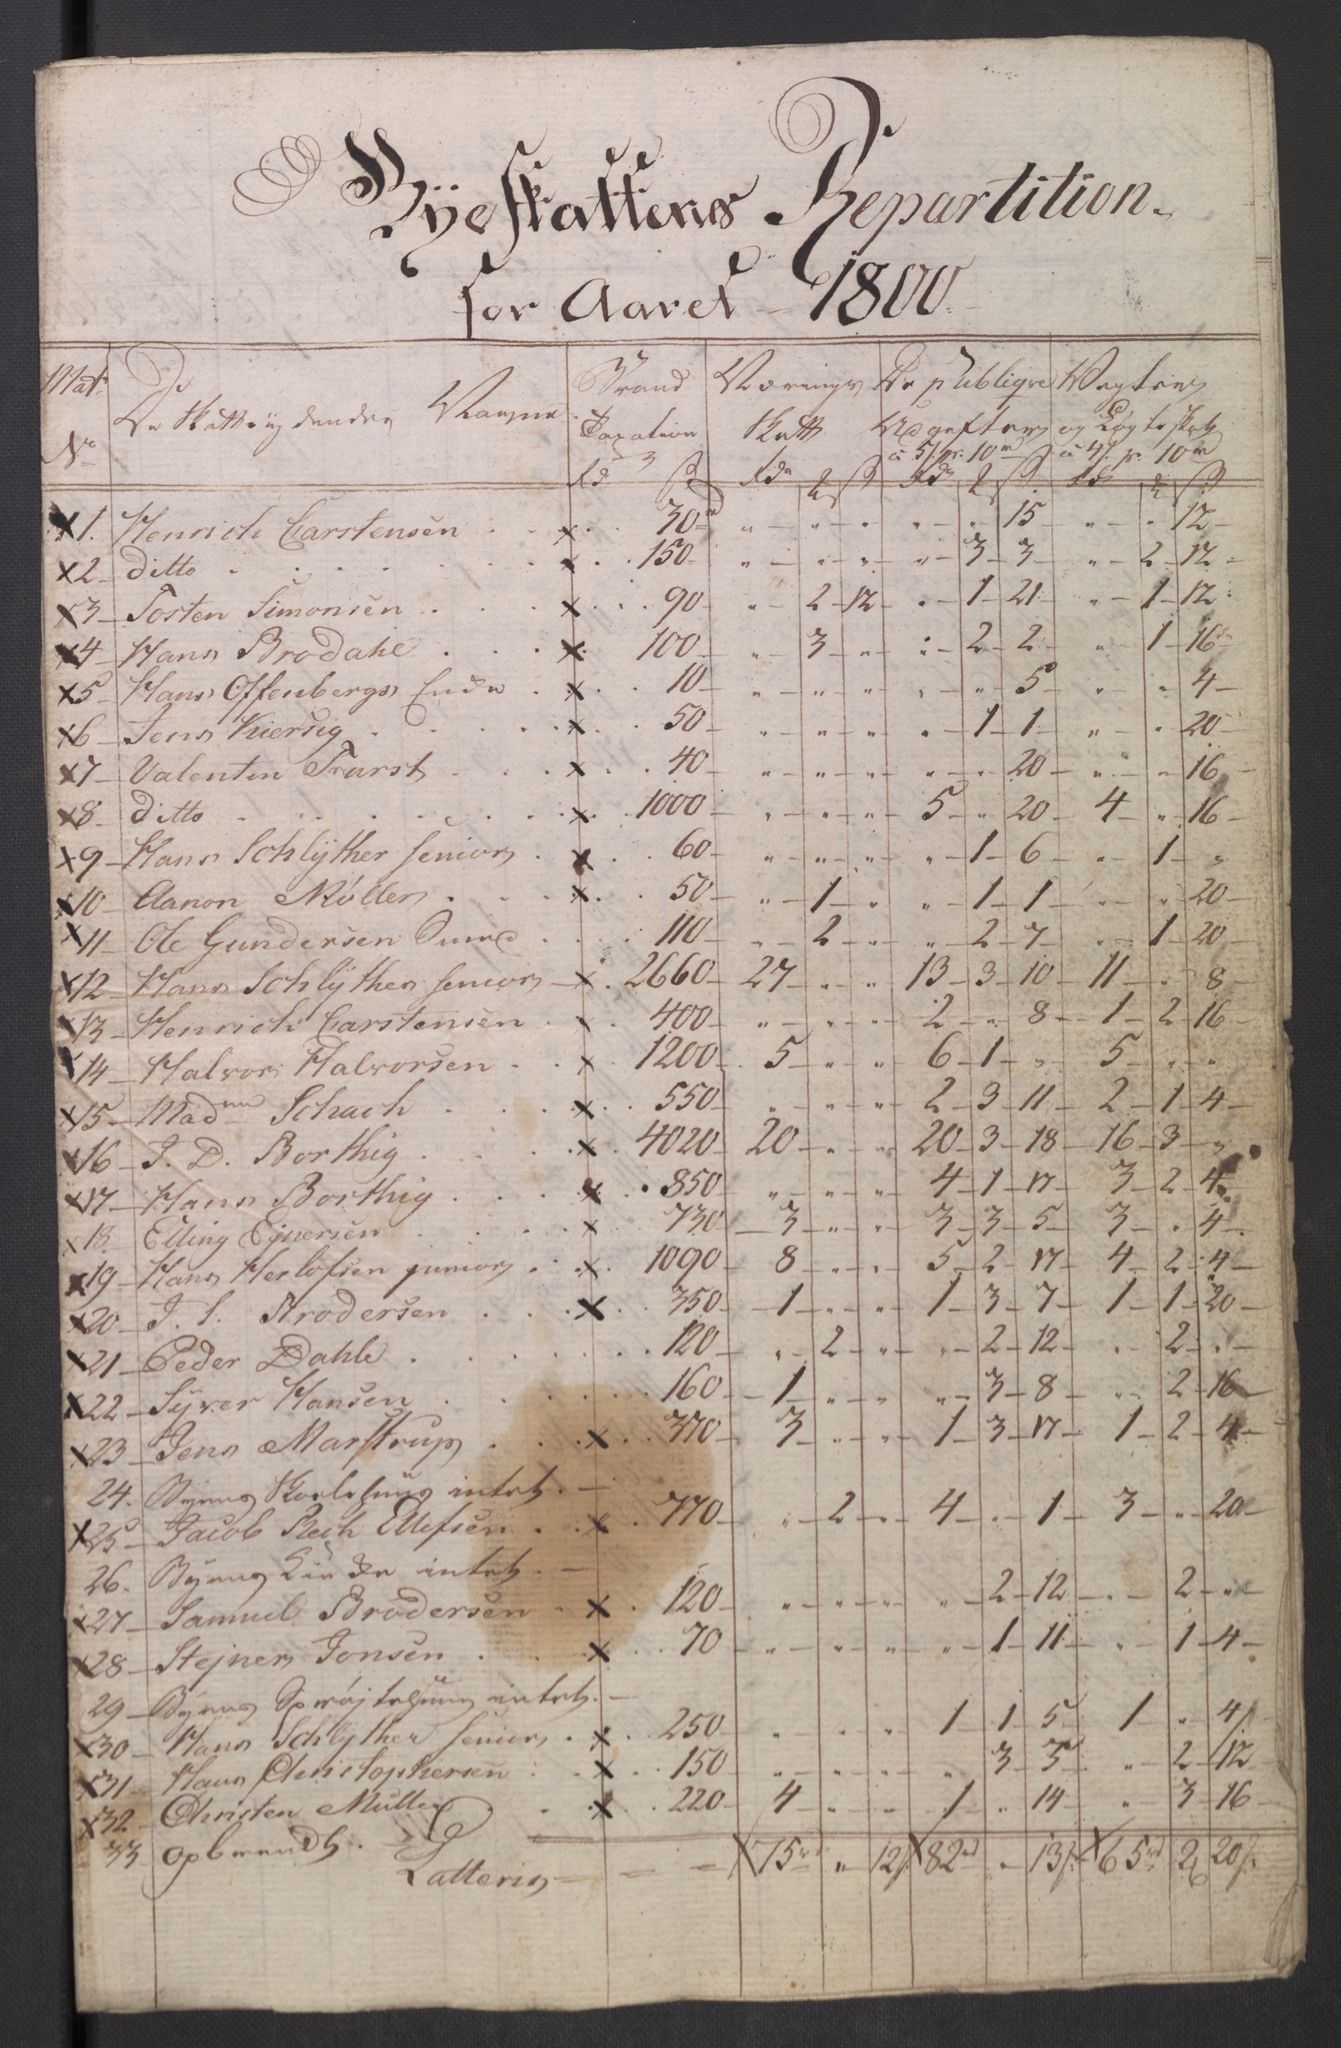 Byeskattens Repartition
for Aaret 1800
Mat. No De Skatteydendes Navne Brand Taxation Rd ß Nærings Skatt Rdr ß De publiqve Udgifter à 5 ß pr. 10 rd ß Vegter og Løgte Skat à 4 ß pr. 10 rd ß
x1. Henrich Carstensen . . x . . 30 rd " " " " " 15 " " 12
x2 ditto . . x . . 150 " " " " 3 3 " 2 12
x3 Tosten Simonsen . . x . . 90 " 2 12 " 1 21 " 1 12
x4 Hans Brodahl . . x . 100 " 3 " " 2 2 " 1 16
x5 Hans Offenbergs Enke . x . . 10 " " " " " 5 " " 4
x6 Jens Kiersig . . x . . 50 " " " " 1 1 " " 20
x7 Valentin Trurst . . x . . 40 " " " " " 20 " " 16
x8 ditto . . x . 1000 " " " 5 " 20 4 " 16
x9 Hans Schlÿther senior . x . . 60 " " " " 1 6 " 1 "
x10 Aanon Møller . . x . . 50 " 1 " " 1 1 " " 20
x11 Ole Gundersen . . 110 " 2 " " 2 7 " 1 20
x12 Hans Schlÿther senior x . 2660 27 " " 13 3 10 11 " 8
x13 Henrich Carstensen . x . 400 " " " 2 " 8 1 2 16
x14 Halvor Halvorsen . . x . 1200 5 " " 6 1 " 5 " "
x15 Madme Schach . . x . . 550 " " " 2 3 11 2 1 4
x16 J. D. Borthig . . x . 4020 20 " " 20 3 18 16 3 "
x17 Hans Borthig . . x . 850 " " " 4 1 17 3 2 4
x18. Elling Ejnersen . . x . . 730 3 " " 3 3 5 3 " 4
x19 Hans Herlofsen junior . x . 1090 8 " " 5 2 17 4 2 4
x20 J. S. Brodersen . . x . . 350 1 " " 1 3 7 1 1 20
x21 Peder Dahle . . 120 " 2 " " 2 12 " 2 "
x22 Syver Hansen . . 160 1 " " " 3 8 " 2 16
x23 Jens Marstrup . . x . . 370 3 " " 1 3 17 1 2 4
24. Byens intet. —
x25 Jacob Ellefsen . . x . . 770 " 2 " 4 " 1 3 " 20
26. Byens Kirke intet. —
x27 Samuel Brodersen . x . 120 " " " " 2 12 " 2 "
x28 Stejner Jonsen . . x . . 70 " " " " 1 11 " 1 4
29 Byens Sprøjtehuus intet. —
x30 Hans Schlÿther senior . x . . 250 " " " 1 1 5 1 " 4
x31 Hans Christophersen . x . . 150 " " " " 3 3 " 2 12
x32 Christen Muller . x . . 220 4 " " 1 " 14 " 3 16
33 opbrændt.
Latteris — — x75 rd " 12 ß x82 rd " 13 ß x65 rd 2 20 ß